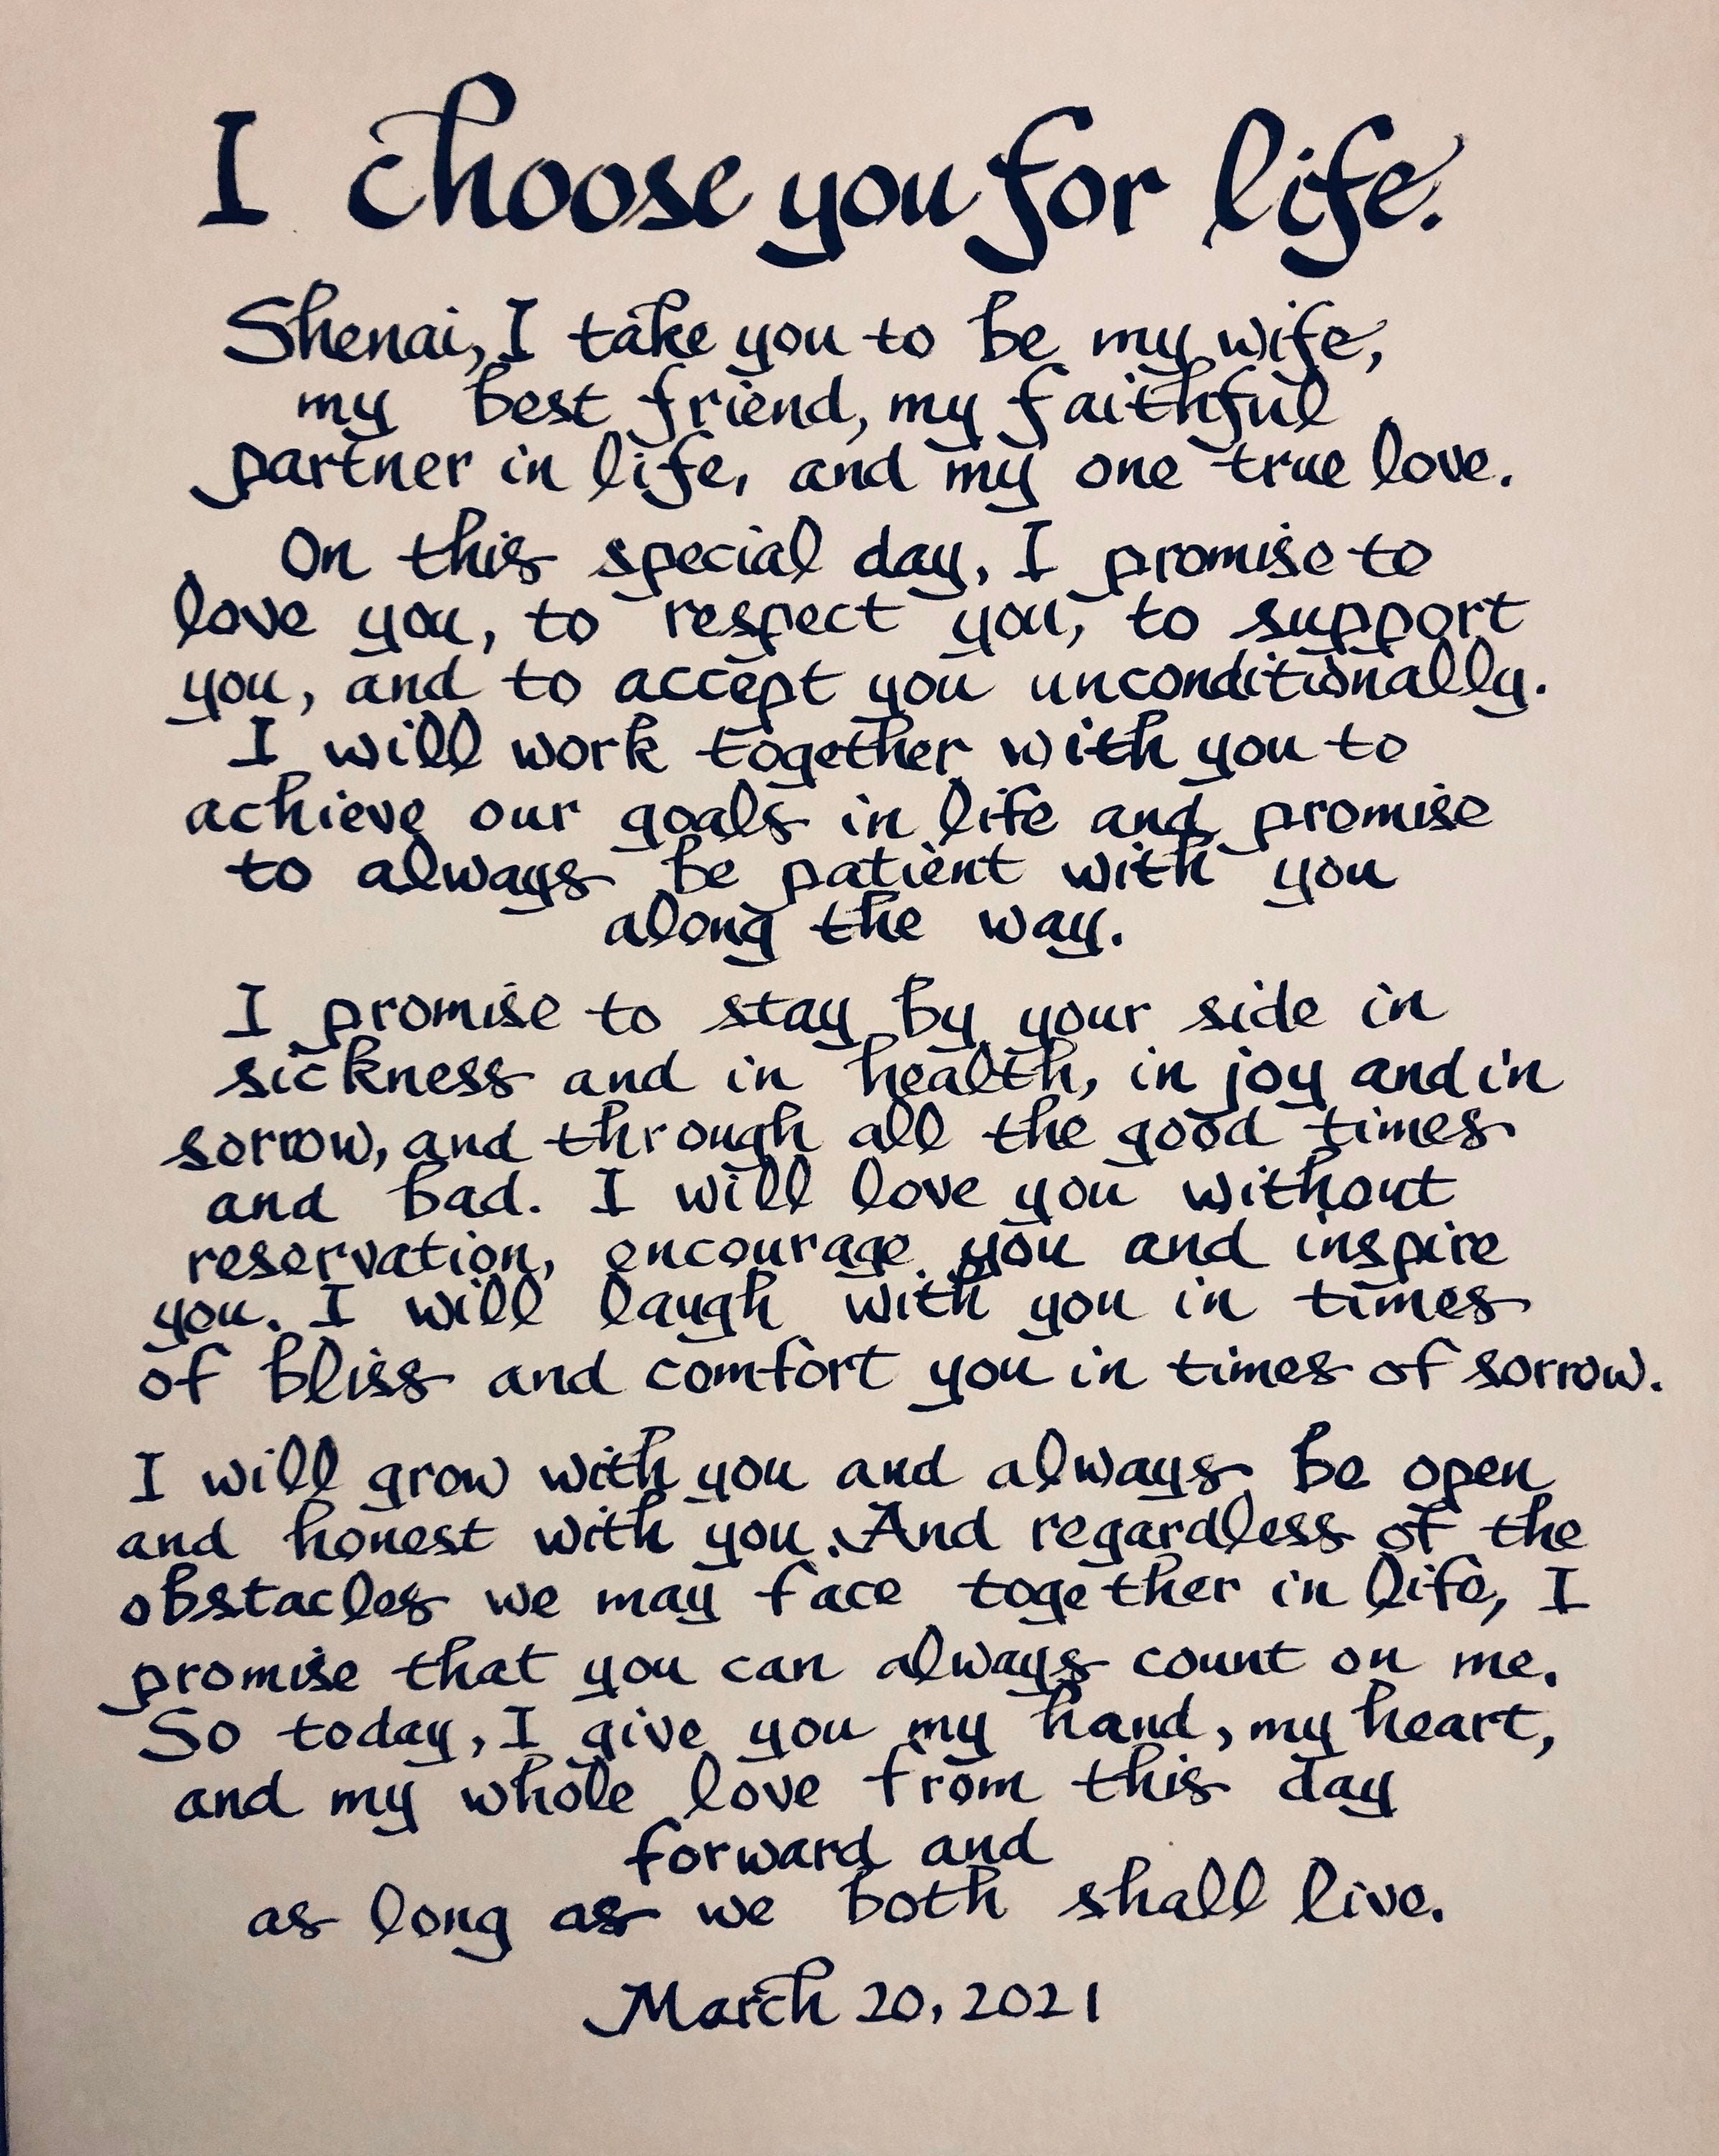 I choose you for life.
Shenai, I take you to be my wife,
my best friend, my faithful
partner in life, and my one true love.
On this special day, I promise to
love you, to respect you, to support
you, and to accept you unconditionally.
I will work together with you to
achieve our goals in life and promise
to always be patient with you
along the way.
I promise to stay by your side in
sickness and in health, in joy and in
sorrow, and through all the good times
and bad. I will love you without
reservation, encourage you and inspire
you. I will laugh with you in times
of bliss and comfort you in times of sorrow.
I will grow with you and always be open
and honest with you. And regardless of the
obstacles we may face together in life, I
promise that you can always count on me.
So today, I give you my hand, my heart,
and my whole love from this day
forward and
as long as we both shall live.
March 20, 2021